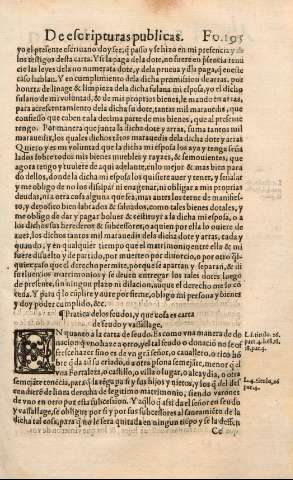 De escripturas publicas. Fo.195
yo el presente escriuano doy fee, q̃ passo y se hizo en mi presencia y de
los testigos desta carta. Y si la paga dela dote, no fuere en presencia renu
cie las leyes dela no numerata dote, y dela prueua dla paga, q̃ eneste
caso hablan. Y en cumplimiento dela dicha promission de arras, por
honrra de linage & limpieza dela dicha fulana mi esposa, yo el dicho
fulano de mi voluntad, & de mis propios bienes, le mando en arras,
para acrescentamiento dela dicha su dote, tantas mil marauedis, que
confiesso que caben en la decima parte de mis bienes, que al presente
tengo. Por manera que junta la dicha dote y arras, suma tantos mil
marauedis, los quales dichos tãtos marauedis dela dicha dote y arras
Quiero y es mi voluntad que la dicha mi esposa los aya y tenga seña
lados sobre todos mis bienes muebles y rayzes, & semouientes, que
agora tengo y tuuiere de aqui adelante, en lo mejor & mas bien para
do dellos, donde la dicha mi esposa los quisiere auer y tener, y señalar
y me obligo de no los disipar ni enagenar, ni obligar a mis propias
deudas, ni a otra cosa alguna que sea, mas antes los terne de manifies-
to, y deposito bien labrados & saluados, como tales bienes dotales, y
me obligo de dar y pagar boluer & restituyr a la dicha mi esposa, o a
los dichos sus herederos & subcessores, o a quien por ella lo ouiere de
auer, los dichos tantos mil marauedis dela dicha dote y arras, cada y
quando, y en qualquier tiempo que el matrimonio entre ella & mi
fuere disuelto y de partido, por muerte o por diuorcio, o por otro q̃l
quier caso que el derecho permite, porque se apartan y separan, & di
suelue los matrimonios y se deuen entregar los tales dotes luego
de presente, sin ningun plazo ni dilacion, aunque el derecho me lo co
ceda. Y para q̃ lo cũplire y aure por firme &c, obligo mi persona y bienes
y doy poder cumplido, &c.
¶ Pratica delos feudos, y que cosa es carta
de feudo y vassallage.
EN quanto a la carta de feudo. Es como vna manera de do
nacion q̃ vno haze a otro, y el tal feudo o donacion no se
pfresce hazer sino es de vn gr̃ã señor, o cauallero, o rico hõ
bre a su criado, o a otra psona semejãte, menor q̃ el
Fortaleza, o castillo, o villa o lugar, o alcaydia, o otra
semejãte tenecia, para q̃ la tẽga pa si y sus hijos y nietos, y los q̃ del des
cendierẽ de linea derecha de legitimo matrimonio, siendo varones
de vno en otro por esta subcession. Y aq̃llo q̃ assi da el señor en feudo
y vassallage, se obligue por si y por sus subcessores al saneamiẽto dela
dicha tal cosa, para q̃ no le sera quitada en ningun tiẽpo y se la defien
Cc
L.4.titulo.26
par.4.